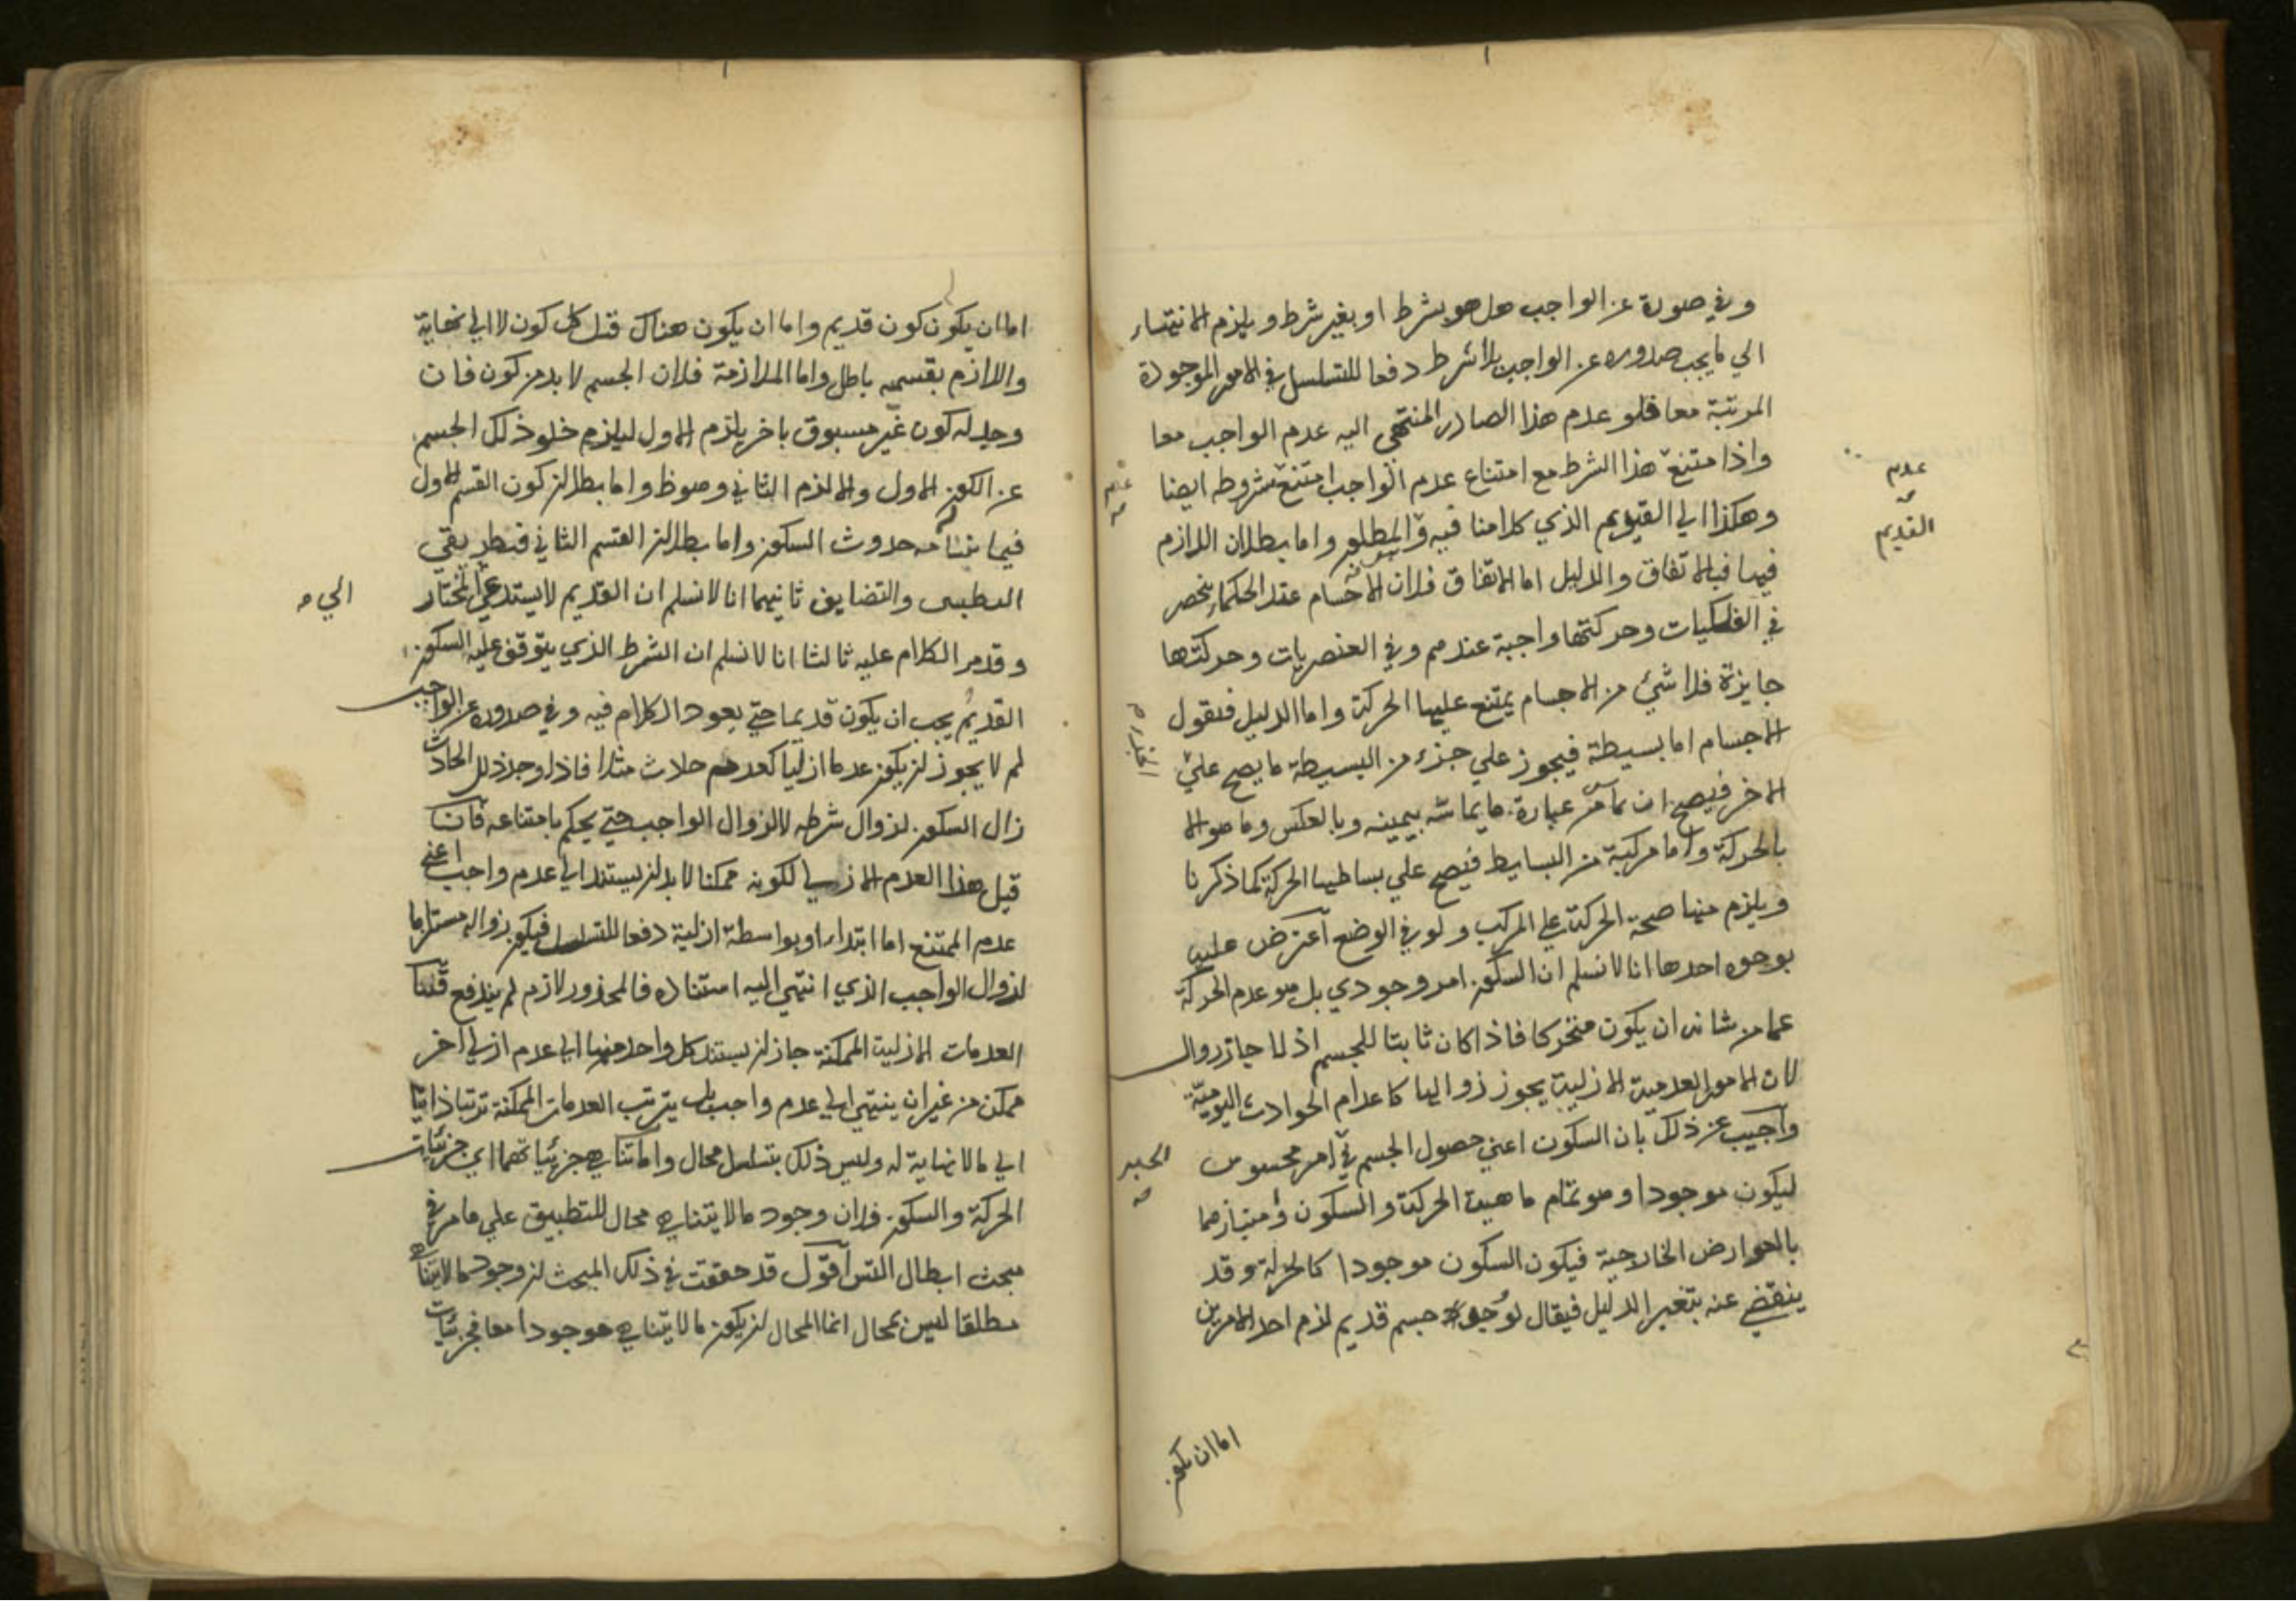 وفي صدوره عن الواجب هل هو بشرط او بغير شرط ويلزم الانتهاء
الي ما يجب صدوره عن الواجب بلا شرط دفعا للتسلسل في الامور الموجودة
المرتبة معا فلو عدم هذا الصادر المنتهي اليه عدم الواجب معا
واذا متنع هذا الشرط مع امتناع عدم الواجب امتنع مشروطه ايضا
وهكذا الي القديم الذي كلامنا فيه والمطلوب واما بطلان اللازم
فيها فبالاتفاق والدليل اما الاتفاق فلان الاجسام عند الحكماء ينحصر
في الفلكيات وحركتها واجبة عندهم وفي العنصريات وحركتها
جايزة فلا شيئ من الاجسام يمتنع عليها الحركة واما الدليل فنقول
الاجسام اما بسيطة فيجوز علي جزء من البسيطة ما يصح علي
الاخر فيصح ان يماس بيساره ما يماسه بيمينه وبالعكس وما هو الا
بالحركة واما مركبة من البسايط فيصح علي بساطيها الحركة كما ذكرنا
ويلزم منها صحة الحركة علي المركب ولو في الوضع اعترض عليه
بوجوه احدها انا لا نسلم ان السكون امر وجودي بل هو عدم الحركة
عما من شانه ان يكون متحركا فاذا كان ثابتا للجسم اذلا جاز زواله
لان الامور العدمية الازلية يجوز زوالها كاعدام الحوادث اليومية
واجيب عن ذلك بان السكون اعني حصول الجسم في امر محسوس
ليكون موجودا وهو تمام ماهية الحركة والسكون وامتيازهما
بالعوارض الخارجية فيكون السكون موجودا كالحركة وقد
ينقضي عنه بتغير الدليل فيقال لو وجد جسم قديم لزم احد الامرين
عدم
القديم
الحيز
اما ان يكون
اما ان يكون كون قديم واما ان يكون هناك قبل كل كون لا الي نهاية
واللازم بقسميه باطل واما الملازمة فلان الجسم لا بد من كون فان
وجد له كون غير مسبوق باخر يلزم الاول ليلزم خلو ذلك الجسم
عن الكون الاول والا لزم الثاني وهو ظ واما بطلان كون القسم الاول
فيما بينا من حدوث السكون واما بطلان القسم الثاني فبطريقي
التطبيق والتضايف ثانيهما انا لا نسلم ان القديم لا يستدعي المختار
وقد مر الكلام عليه ثالثا انا لا نسلم ان الشرط الذي يتوقف عليه السكون
القديم يجب ان يكون قديما حتي يعود الكلام فيه وفي صدوره عن الواجب
لم لا يجوز ان يكون عدما ازليا كعدم حادث مثلا فاذا وجد ذلك الحادث
زال السكون لزوال شرطه لا لزوال الواجب حتي يحكم بامتناعه فان
قيل هذا العدم الازلي لكونه ممكنا لا بد ان يستند الي عدم واجب اعني
عدم الممتنع اما ابتداء او بواسطة ازلية دفعا للتسلسل فيكون زواله مستلزما
لزوال الواجب الذي انتهي اليه استناده فالمحذور لازم لم يندفع قلنا
العدمات الازلية الممكنة جاز ان يستند كل واحد منها الي عدم ازلي اخر
ممكن من غير ان ينتهي الي عدم واجب بل يترتب العدمات الممكنة ترتبا ذاتيا
الي ما لا نهاية له وليس ذلك بتسلسل محال واما تناهي جزئياتهما اي جزئيات
الحركة والسكون فلان وجود ما لا يتناهي محال للتطبيق علي ما مر في
مبحث ابطال التس اقول قد حققت في ذلك المبحث ان وجود ما لا يتناهي
مطلقا ليس بمحال انما المحال ان يكون ما لا يتناهي موجودا معا فجزئيات